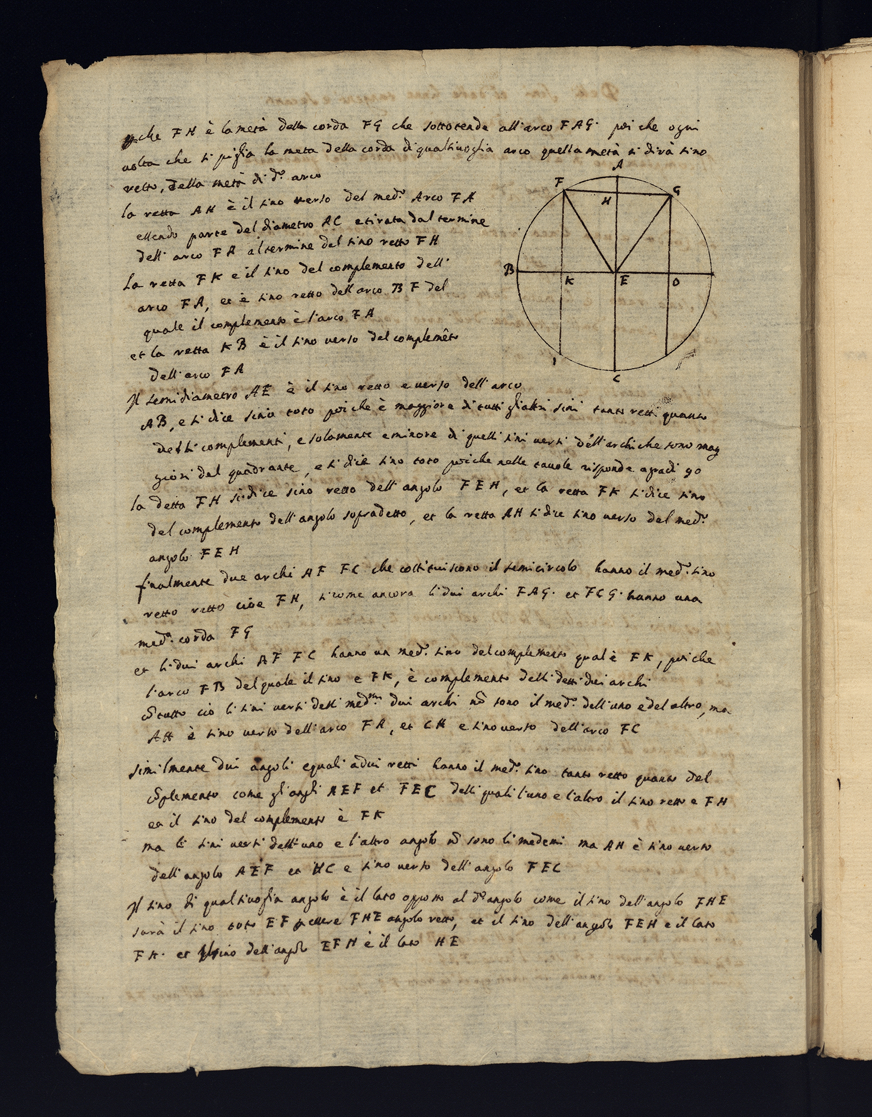 che FH è la metà della corda FG che sottotende all'arco FAG. poi che ogni
volta che si piglia la metà della corda di qualsivoglia arco quella metà si dirà sino
retto, della metà di d.º arco
la retta AH è il sino verso del med.º Arco FA
essendo parte del diametro AC e tirata dal termine
dell'arco FA al termine del sino retto FH
La retta FK è il sino del complemento dell'
arco FA, et è sino retto dell'arco BF del
quale il complemento è l'arco FA
et la retta KB è il sino verso del complemẽto
dell'arco FA
Il semidiametro AE è il sino retto e verso dell'arco
AB, e si dice sino toto poi che è maggiore di tutti gl'altri sini tanto retti quanto
delli complementi, e solamente e minore di quelli sini versi dell'archi che sono mag
giori del quadrante, e si dice sino toto poiche nelle tavole risponde a gradi 90
la detta FH si dice sino retto dell'angolo FEH, et la retta FK si dice sino
del complemento dell'angolo sopradetto, et la retta AH si dice sino verso del med.º
angolo FEH
finalmente due archi AF FC che costituiscono il semicircolo hanno il med.º sino
retto retto cioe FH, si come ancora li dui archi FAG. et FCG. hanno una
med.ª corda FG
et li dui archi AF FC hanno un med.º sino del complemento qual è FK, poi che
l'arco FB del quale il sino e FK, è complemento delli detti dui archi
cõ tutto ciò li sini versi delli med.mi dui archi nõ sono il med.º dell'uno e del altro, ma
AH è sino verso dell'arco FA, et CH e sino verso dell'arco FC
Similmente dui angoli eguali a dui retti hanno il med.º sino tanto retto quanto del
cõplemento come gl'angli AEF et FEC delli quali l'uno e l'altro il sino retto e FH
et il sino del complemento è FK
ma li sini versi dell'uno e l'altro angolo nõ sono li medemi ma AH è sino verso
dell'angolo AEF et HC e sino verso dell'angolo FEC
Il sino di qualsivoglia angolo è il lato opposto al d.º angolo come il sino dell'angolo FHE
sarà il sino toto EF p essere FHE angolo retto, et il sino dell'angolo FEH e il lato
FH. et il sino dell'angolo EFH è il lato HE
A
F
G
H
B
K
E
O
I
C